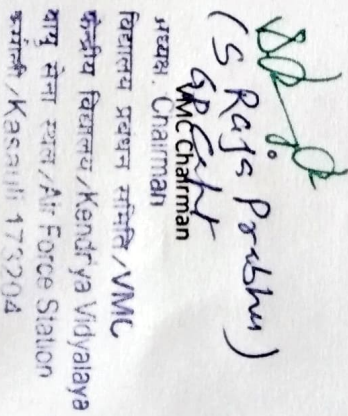 (S Raja Prabhu)
GP Capt
VMC Chairman
अध्यक्ष. Chairman
विद्यालय प्रबंधन समिति/VMC
केन्द्रीय विद्यालय/Kendriya Vidyalaya
वायु सेना स्थल/Air Force Station
कसौली/Kasauli 173204